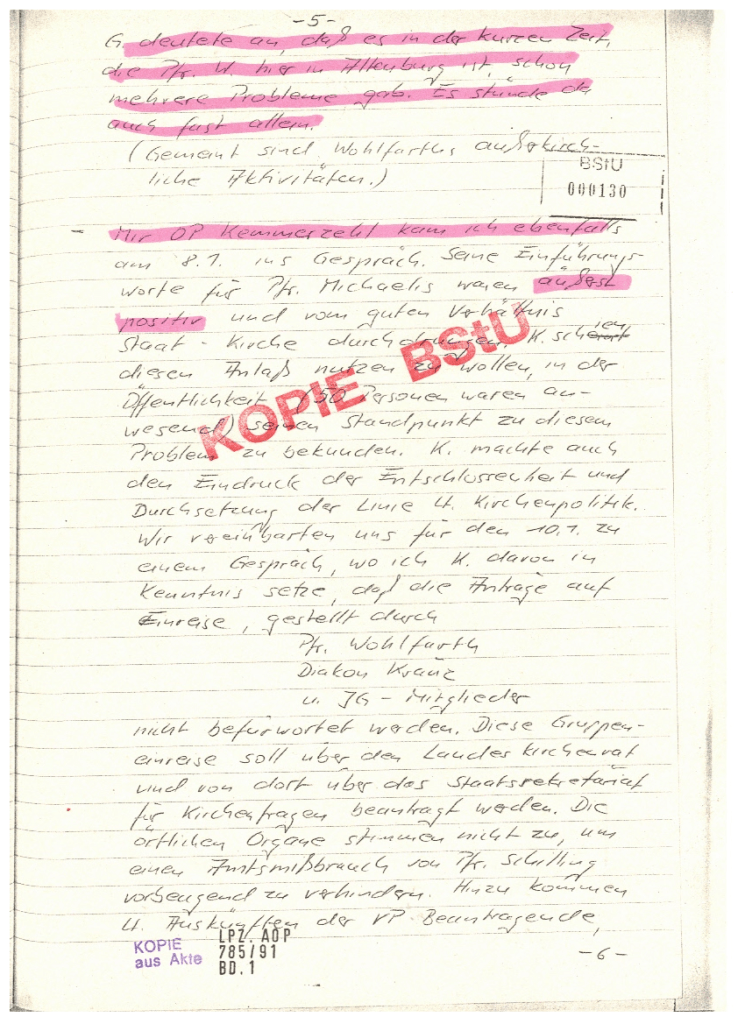 -5-
G. deutete an, daß es in der kurzen Zeit,
die Pfr. W. hier in Altenburg ist, schon
mehrere Probleme gab. Es stünde da
auch fast allein.
(Gemeint sind Wohlfarths außerkirch-
liche Aktivitäten.)
BStU
000130
- Mit OP Kemmerzehl kam ich ebenfalls
am 8.1. ins Gespräch. Seine Einführungs-
worte für Pfr. Michaelis waren äußerst
positiv und vom guten Verhältnis
Staat - Kirche durchdrungen. K. schien
diesen Anlaß nutzen zu wollen, in der
Öffentlichkeit (50 Personen waren an-
wesend) seinen Standpunkt zu diesem
Problem zu bekunden. K. machte auch
den Eindruck der Entschlossenheit und
Durchsetzung der Linie lt. Kirchenpolitik.
Wir vereinbarten uns für den 10.1. zu
einem Gespräch, wo ich K. davon in
Kenntnis setze, daß die Anträge auf
Einreise, gestellt durch
Pfr. Wohlfarth
Diakon Kranz
u. JG - Mitglieder
nicht befürwortet werden. Diese Gruppen-
einreise soll über den Landeskirchenrat
und von dort über das Staatssekretariat
für Kirchenfragen beantragt werden. Die
örtlichen Organe stimmen nicht zu, um
einen Amtsmißbrauch von Pfr. Schilling
vorbeugend zu verhindern. Hinzu kommen
lt. Auskünften der VP Beantragende,
KOPIE BStU
KOPIE
aus Akte
LPZ. AOP
785/91
BD.1
-6-